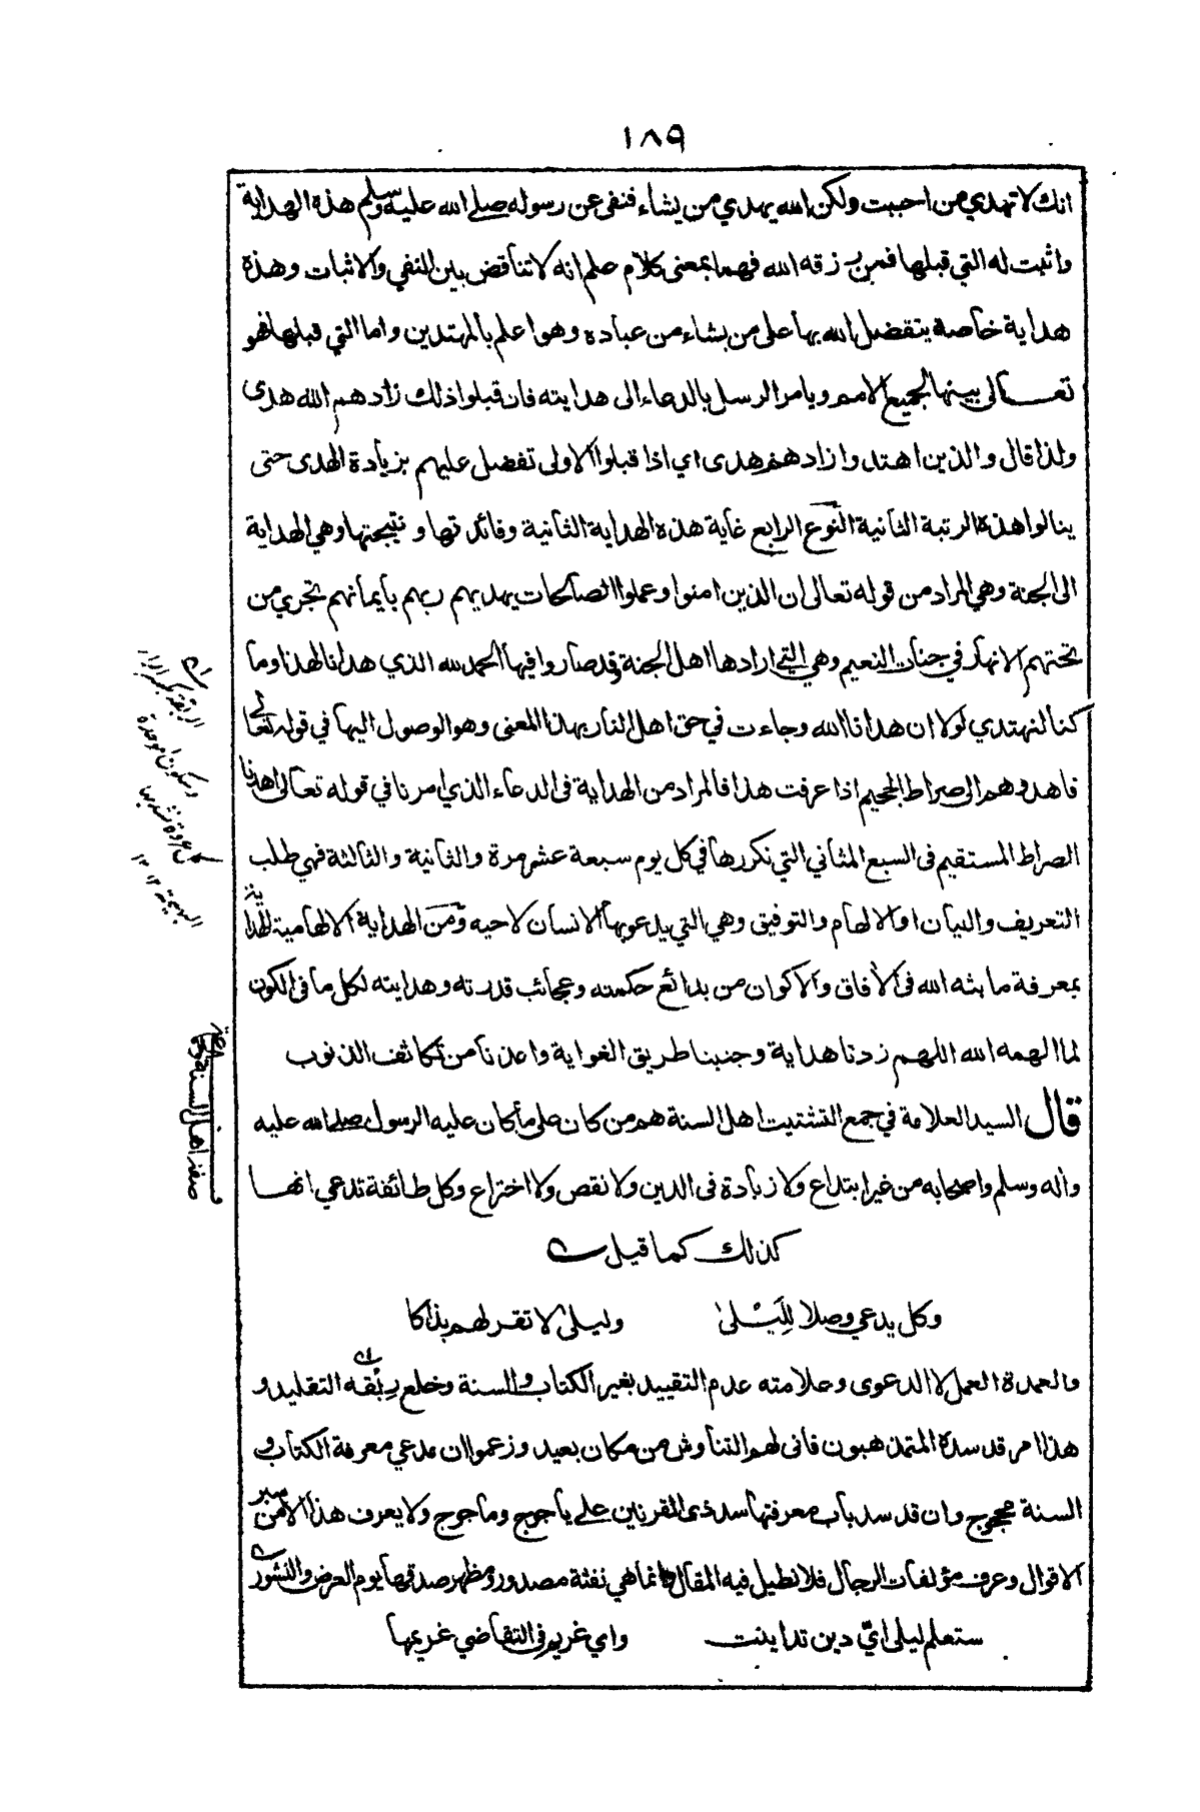 ١٨٩
انك لا تهدي من احببت ولكن الله يهدي من يشاء فنفى عن رسوله صلى الله عليه وسلم هذه الهداية
واثبت له التي قبلها فمن رزقه الله فهما بمعنى كلام علم انه لا تناقض بين النفي والاثبات وهذه
هداية خاصة يتفضل الله بها على من يشاء من عباده وهو اعلم بالمهتدين واما التي قبلها فهو
تعالى بينها لجميع الامم ويامر الرسل بالدعاء الى هدايته فان قبلوا ذلك زادهم الله هدى
ولذا قال والذين اهتدوا زادهم هدى اي اذا قبلوا الاولى تفضل عليهم بزيادة الهدى حتى
ينالوا هذه الرتبة الثانية النوع الرابع غاية هذه الهداية الثانية وفائدتها ونتيجتها وهي الهداية
الى الجنة وهي المراد من قوله تعالى ان الذين امنوا وعملوا الصالحات يهديهم ربهم بايمانهم تجري من
تحتهم الانهار في جنات النعيم وهي التي ارادها اهل الجنة وقد صاروا فيها الحمد لله الذي هدانا لهذا وما
كنا لنهتدي لولا ان هدانا الله وجاءت في حق اهل النار بهذا المعنى وهو الوصول اليها في قوله تعالى
فاهدوهم الى صراط الجحيم اذا عرفت هذا فالمراد من الهداية فى الدعاء الذي امرنا في قوله تعالى اهدنا
الصراط المستقيم فى السبع المثاني التي نكررها في كل يوم سبعة عشر مرة والثانية والثالثة فهي طلب
التعريف والبيان او الالهام والتوفيق وهي التي يدعو بها الانسان لاخيه ومن الهداية الالهامية الهداية
بمعرفة ما بثه الله فى الآفاق والاكوان من بدائع حكمته وعجائب قدرته وهدايته لكل ما فى الكون
لما الهمه الله اللهم زدنا هداية وجنبنا طريق الغواية واعذنا من تكاثف الذنوب
قال السيد العلامة في جمع التشتيت اهل السنة هم من كان على ما كان عليه الرسول صلى الله عليه
واله وسلم واصحابه من غير ابتداع ولا زيادة فى الدين ولا نقص ولا اختراع وكل طائفة تدعي انها
كذلك كما قيل
وكل يدعي وصلا لليلى وليلى لا تقر لهم بذاكا
والعمدة العمل لا الدعوى وعلامته عدم التقييد بغير الكتاب والسنة وخلع رِبْقه التقليد و
هذا امر قد سده المتمذهبون فانى لهم التناوش من مكان بعيد وزعموا ان مدعي معرفة الكتاب و
السنة محجوج وان قد سد باب معرفتها سد ذى القرنين على ياجوج وماجوج ولا يعرف هذا الا من سبر
الاقوال وعرف مؤلفات الرجال فلا نطيل فيه المقال فانما هي نفثة مصدور ومظهر صدقها يوم العرض والنشور
ستعلم ليلى ايّ دين تداينت واي غريم فى التقاضي غريمها
الربقة بكسر الراء
وسكون الموحدة
عروة تشد بها
البهيمة ١٢ ١٢
صفة اهل السنة